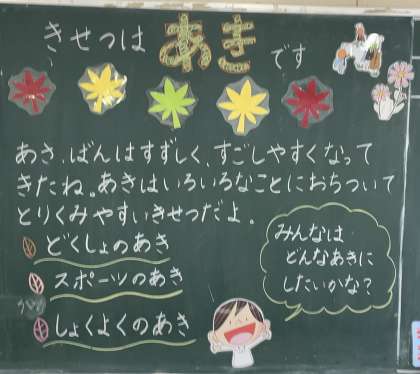 きせつは あき です
あさ、ばんはすずしく、すごしやすくなって
きたね。あきはいろいろなことにおちついて
とりくみやすいきせつだよ。
どくしょのあき
スポーツのあき
しょくよくのあき
みんなは
どんなあきに
したいかな?